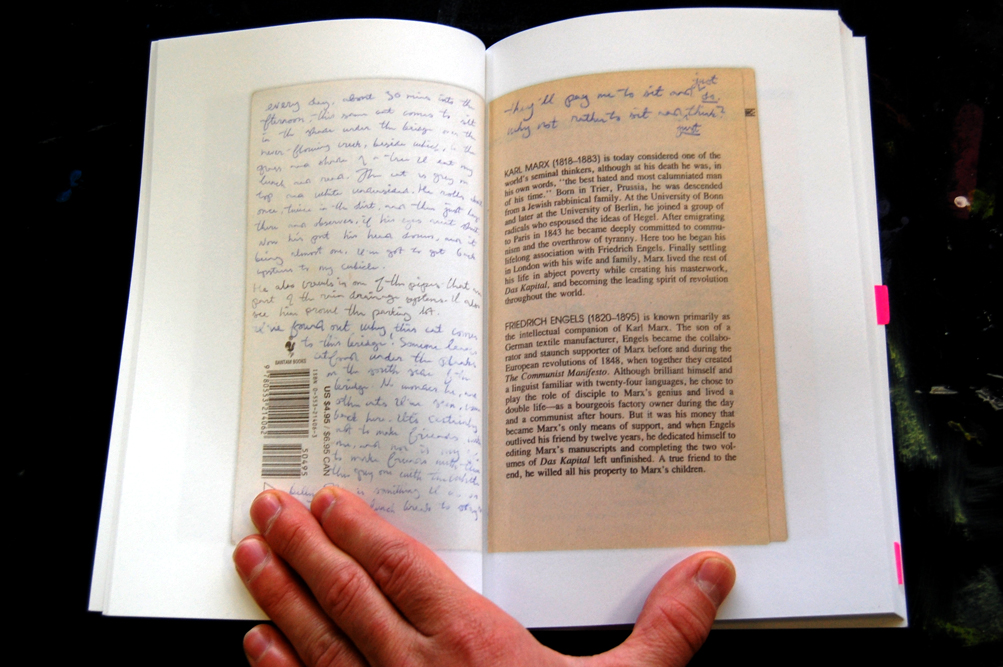 every day, about 30 mins into the
afternoon this same cat comes to sit
in the shade under the bridge over the
never-flowing creek, beside which, in the
grass and shade of a tree I'll eat my
lunch and read. The cat is grey on
top and white underneath. He rolls
once, twice in the dirt, and then just
there and observes, if his eyes aren't shut
Now his put his head down, and it
being almost one, I've got to get back
upstairs to my cubicle.
He also crawls in one of the pipes that
part of the rain drainage system. I
see him prowl the parking lot.
I've found out why this cat comes
to this bridge. Someone
catfood under the
on the south side
bridge. No wonder he, and
other cats I've seen,
back here. It's certainly
not to make friends with
me, and nor is my
to make friends with
this grey one with
is something
lunch break to
BANTAM BOOKS
9 780553 214062
ISBN 0-553-21406-3
50495
US $4.95 / $6.95 CAN
they'll pay me to sit and just do.
why not rather to sit and just think?
KARL MARX (1818–1883) is today considered one of the
world's seminal thinkers, although at his death he was, in
his own words, "the best hated and most calumniated man
of his time." Born in Trier, Prussia, he was descended
from a Jewish rabbinical family. At the University of Bonn
and later at the University of Berlin, he joined a group of
radicals who espoused the ideas of Hegel. After emigrating
to Paris in 1843 he became deeply committed to commu-
nism and the overthrow of tyranny. Here too he began his
lifelong association with Friedrich Engels. Finally settling
in London with his wife and family, Marx lived the rest of
his life in abject poverty while creating his masterwork,
Das Kapital, and becoming the leading spirit of revolution
throughout the world.
FRIEDRICH ENGELS (1820–1895) is known primarily as
the intellectual companion of Karl Marx. The son of a
German textile manufacturer, Engels became the collabo-
rator and staunch supporter of Marx before and during the
European revolutions of 1848, when together they created
The Communist Manifesto. Although brilliant himself and
a linguist familiar with twenty-four languages, he chose to
play the role of disciple to Marx's genius and lived a
double life—as a bourgeois factory owner during the day
and a communist after hours. But it was his money that
became Marx's only means of support, and when Engels
outlived his friend by twelve years, he dedicated himself to
editing Marx's manuscripts and completing the two vol-
umes of Das Kapital left unfinished. A true friend to the
end, he willed all his property to Marx's children.